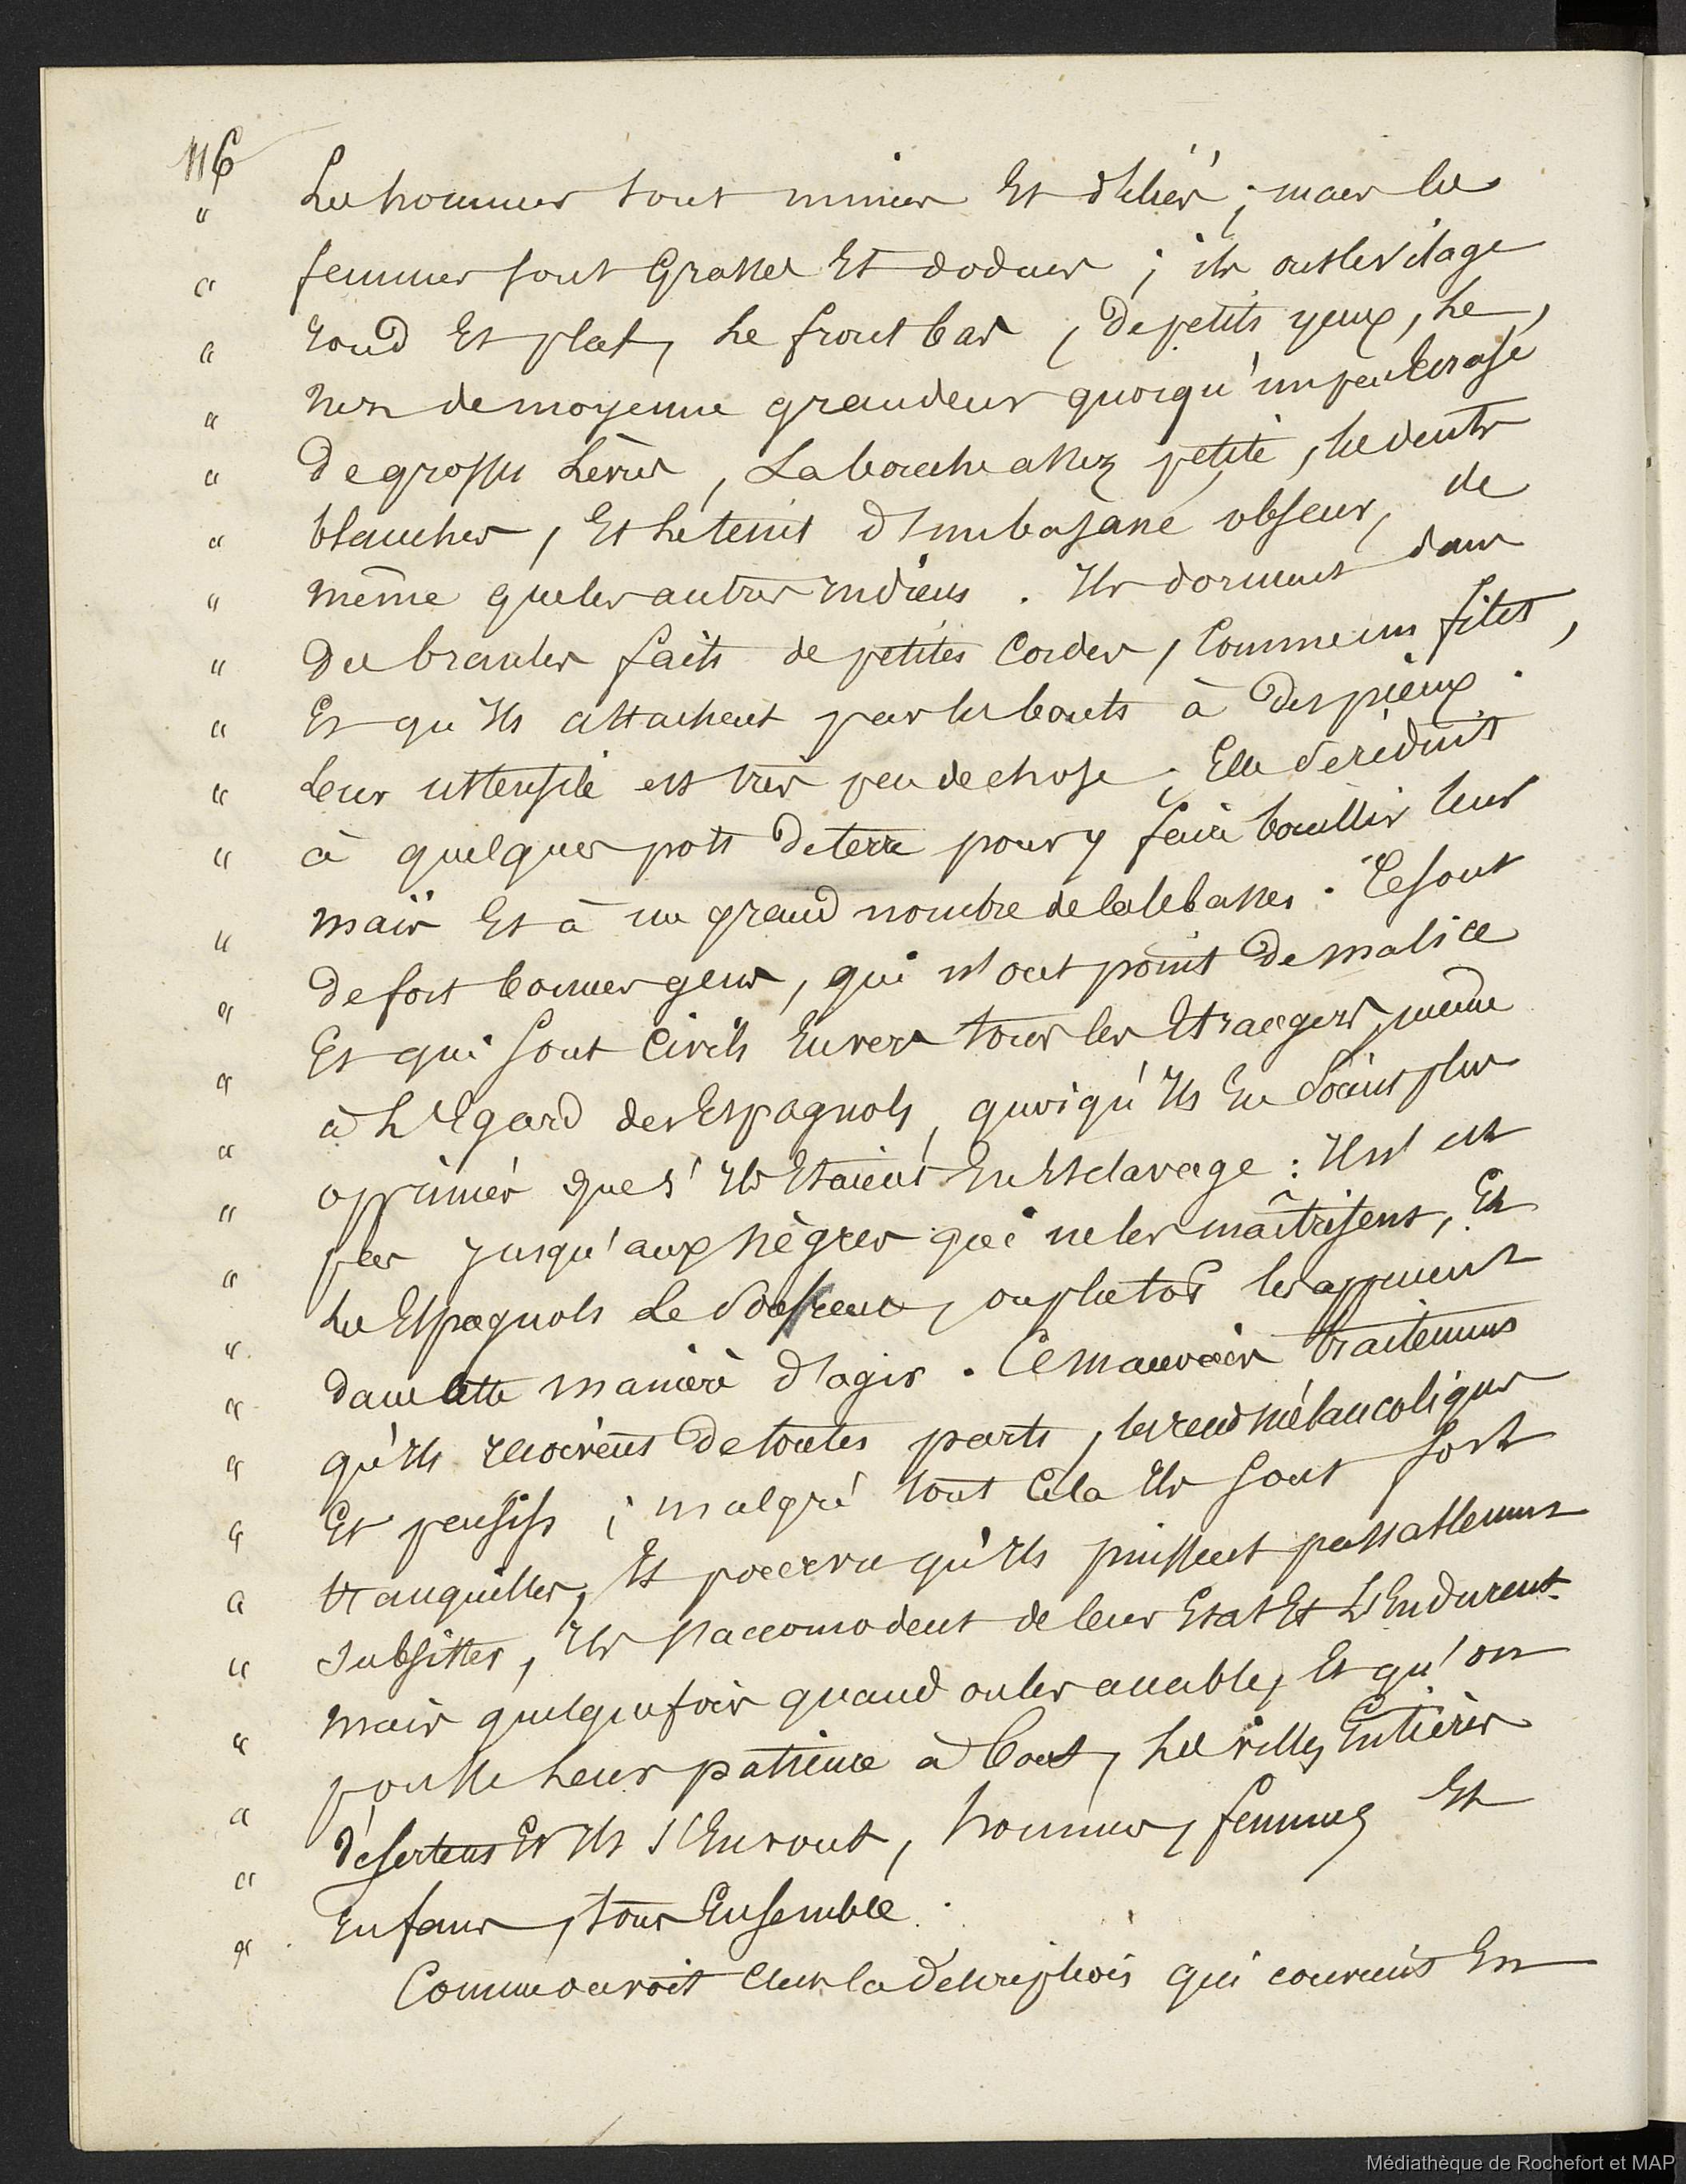 116
" Les hommes sont minces Et déliés ; mais les
" femmes sont Grasses Et dodues ; ils ont le visage
" rond Et plat, Le front bas, De petits yeux, Le
" nez de moyenne grandeur quoiqu'un peu Ecrasé
" De grosses Lèvres, La bouche assez petite, les dents
" blanches, Et Le teint d'un basané obscur, de
" même que les autres Indiens. Ils dorment dans
" Des branles faits de petites Cordes, Comme un filet,
" Et qu'Ils attachent par les bouts à Des pieux.
" Leur uttensile est très peu de chose ; Elle se réduit
" à quelques pots De terre pour y faire bouillir leur
" maïs Et à un grand nombre de Calebasses. Ce sont
" De fort bonnes gens, qui n'ont point De malice
" Et qui sont Civils Envers tous les Etrangers, même
" à L'Egard des Espagnols, quoiqu'Ils En soient plus
" opprimés que s'Ils Etaient En Esclavage : Il n'est
" pas jusqu'aux nègres qui ne les maîtrisent, Et
" Les Espagnols Le souffrent, ou plutot les appuient
" Dans Cette manière d'agir. Ce mauvais traitement
" qu'Ils reçoivent De toutes parts, les rend mélancoliques
" Et pensifs ; malgré tout Cela Ils sont fort
" tranquilles, Et pourvu qu'Ils puissent passablement
" subsister, Ils s'accomodent de leur Etat Et L'Endurent.
" mais quelquefois quand on les accable, Et qu'on
" pousse Leur patience à bout, Les villes Entières
" désertent Et Ils s'En vont, hommes, femmes Et
" Enfans, tous Ensemble.
Comme on voit dans la description qui convient En
Médiathèque de Rochefort et MAP